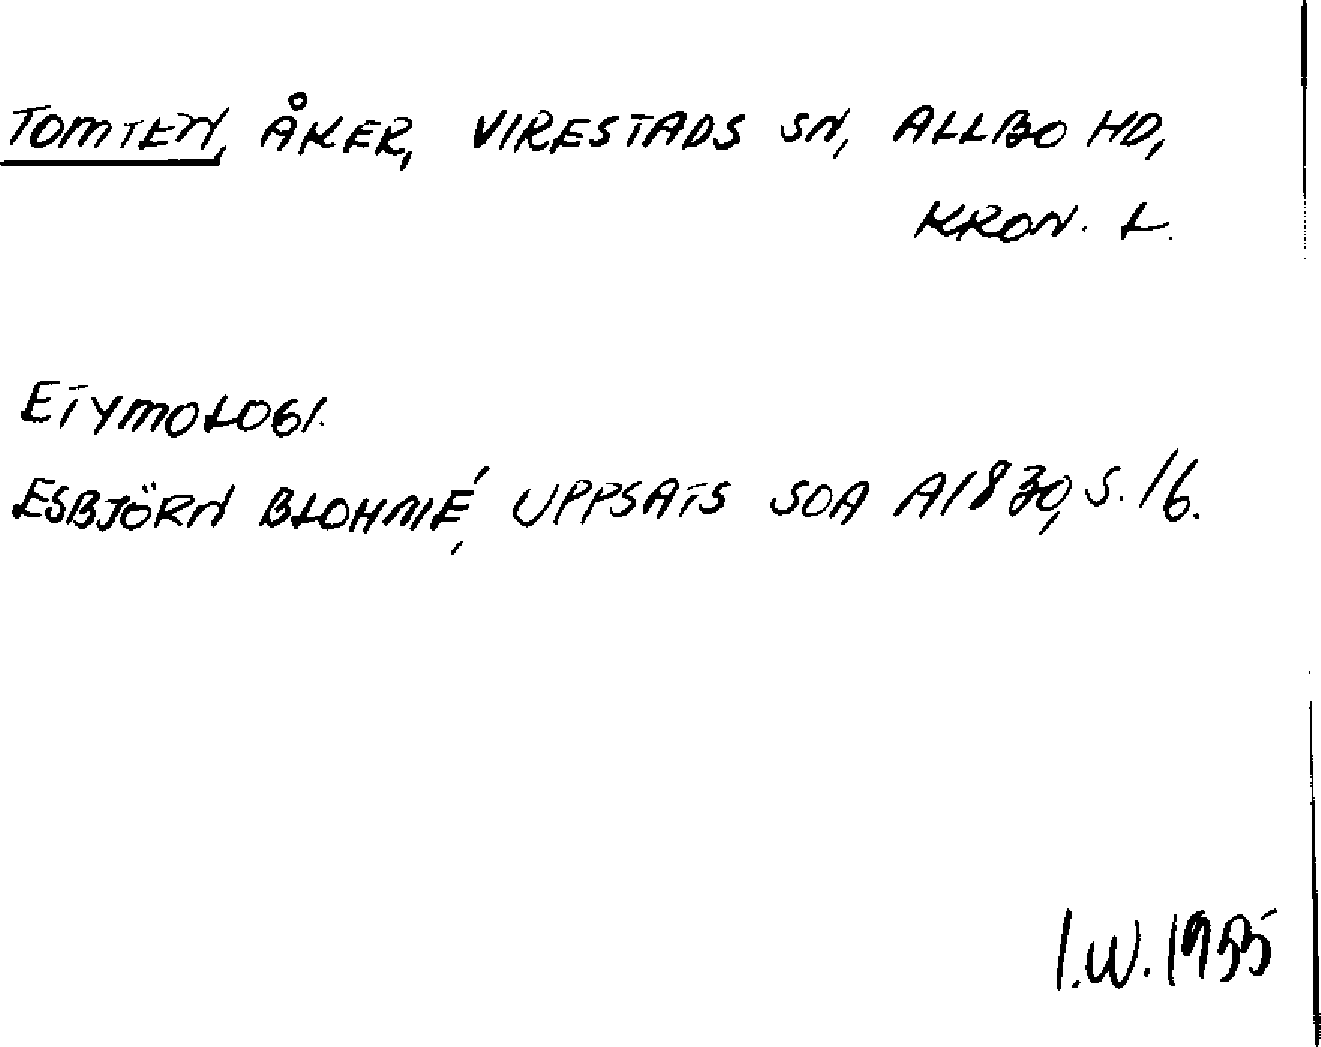 TOMTEN, ÅKER, VIRESTADS SN, ALLBO HD,
KRON. L.
ETYMOLOGI.
ESBJÖRN BLOHMÉ, UPPSATS SOA A1830, S. 16.
I.W. 1955